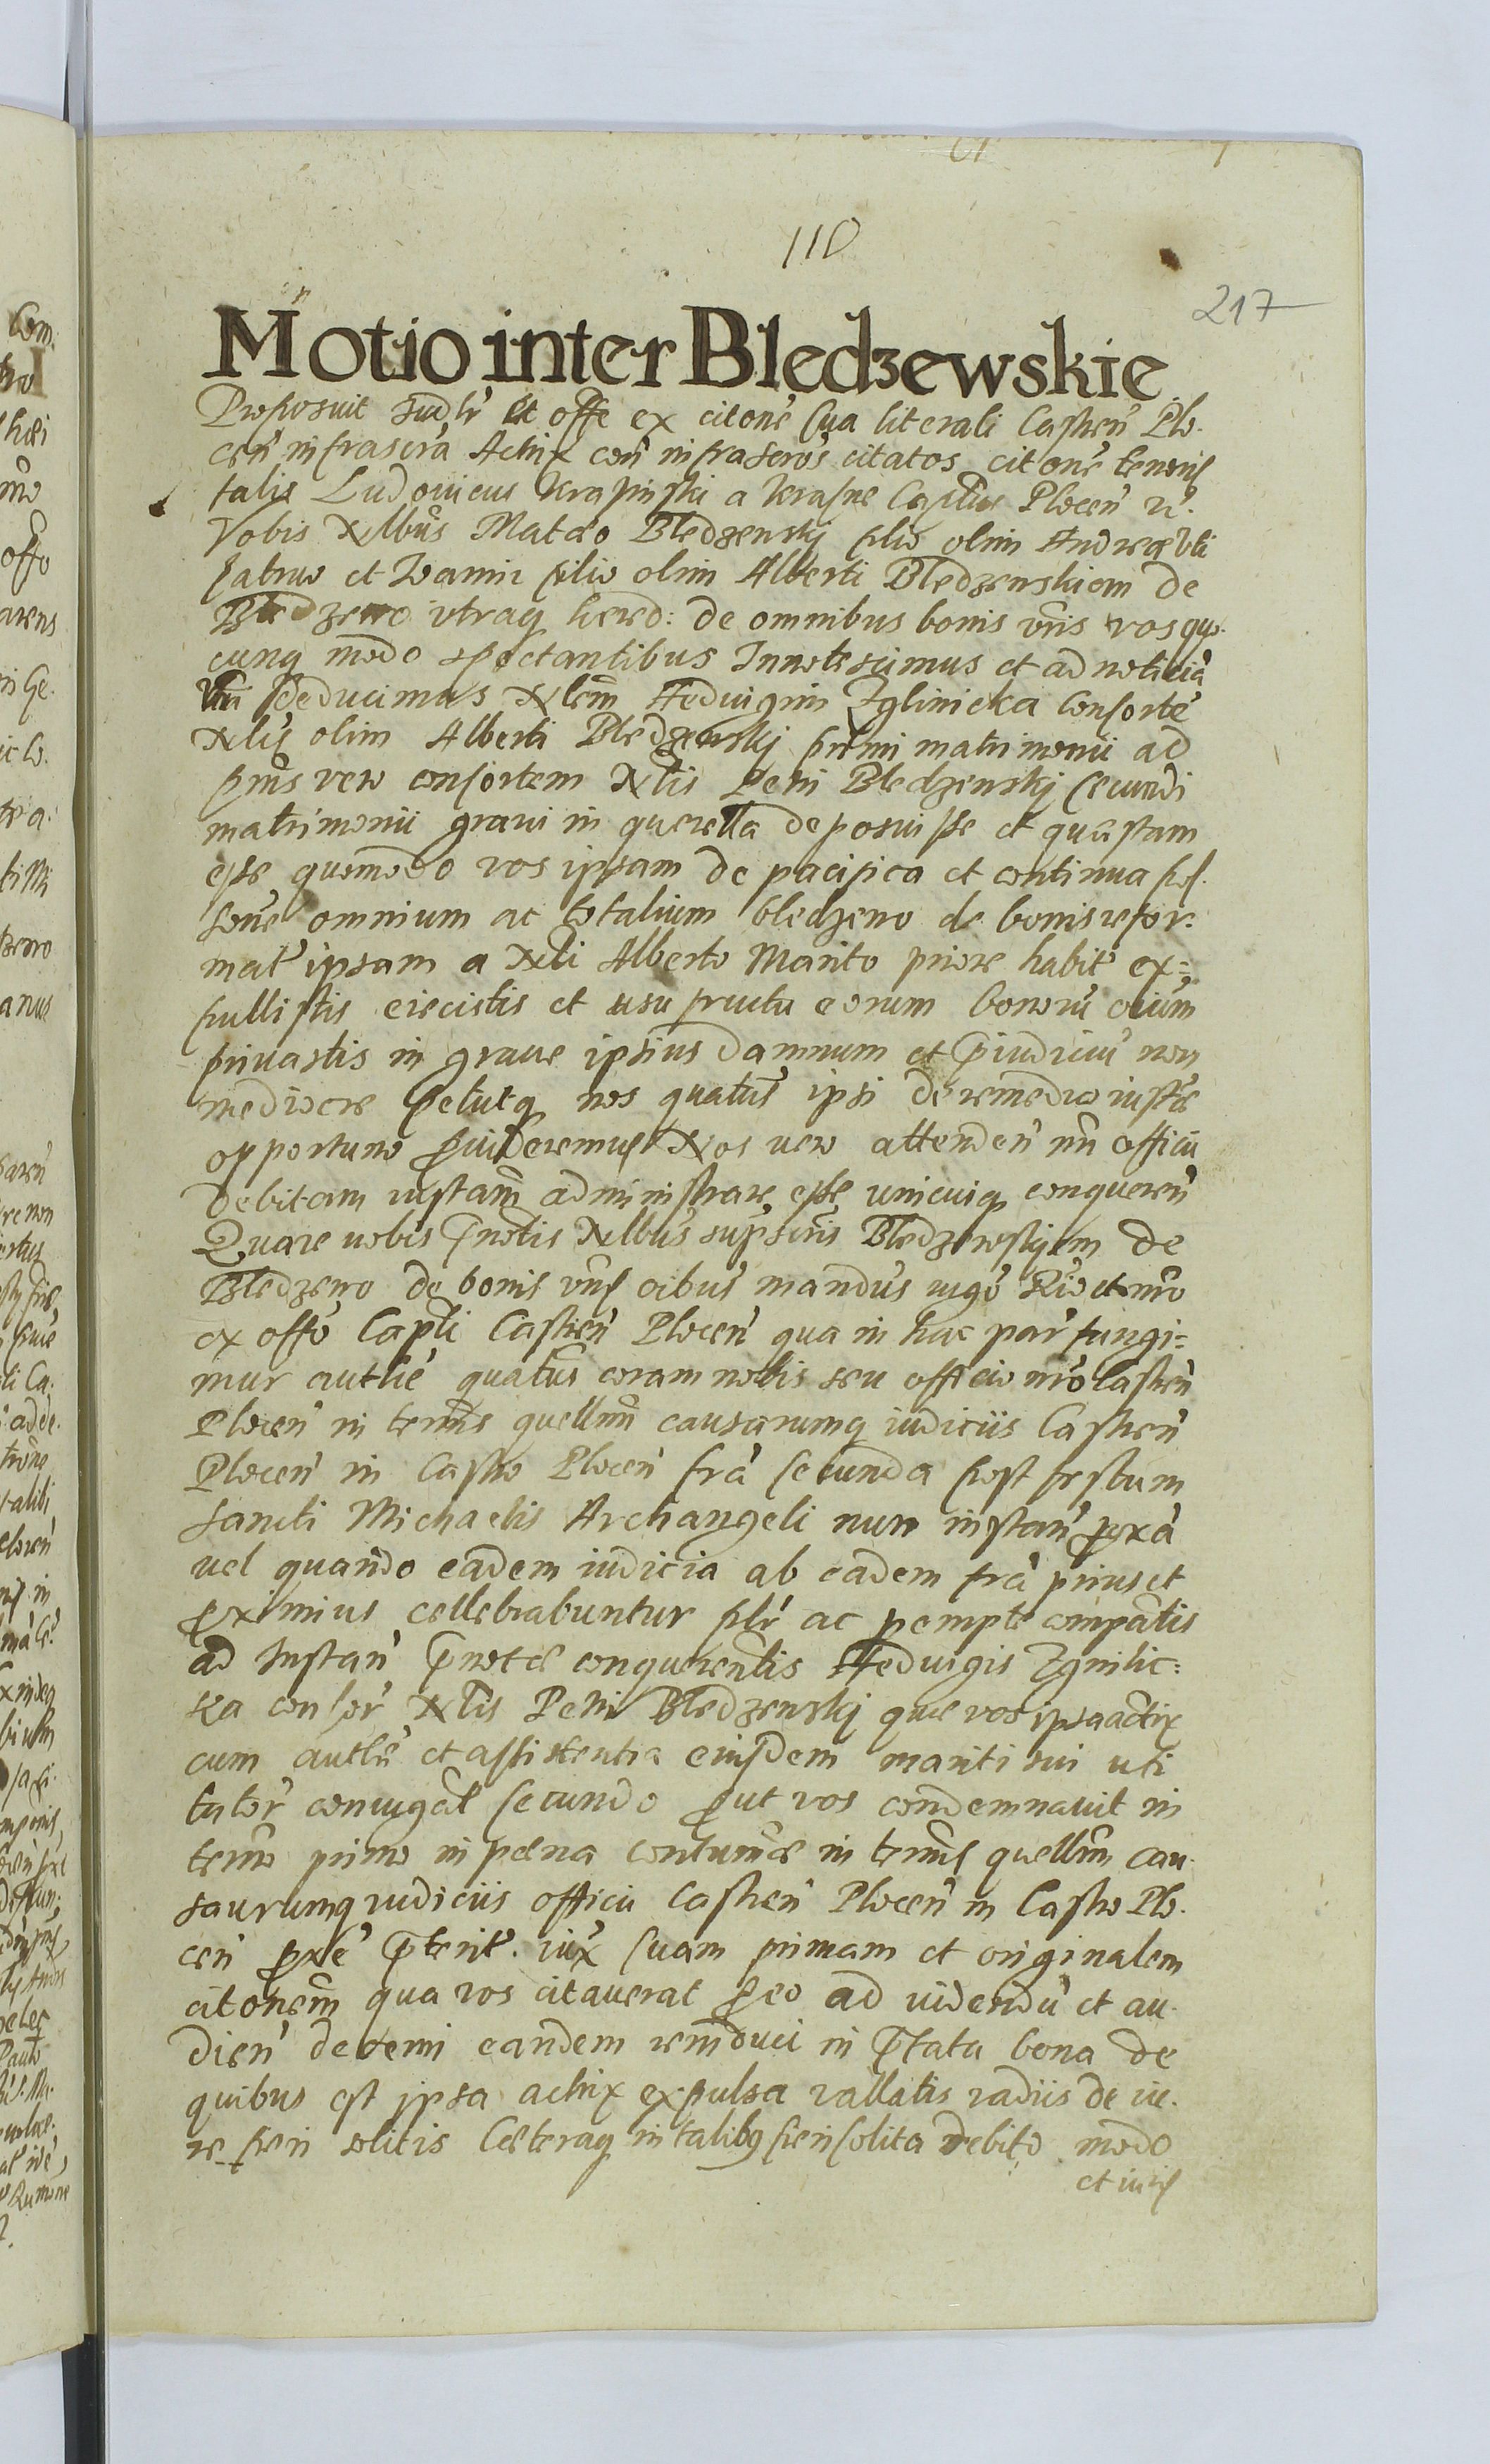 110
217
Motio inter Bledzewskie
Proposuit Judlr et offe ex citone sua literali Castren Plo.
cen infrascra Actrix con infrascros citatos citone tenoris
talis Ludovicus Krasinski a Krasne Captus Plocen rc.
Vobis Nllbus Matheo Bledzewskj filio olim Andreæ uti
patruo et Joanni filio olim Alberti Bledzewskiem de
Bledzewo utraq hered: de omnibus bonis vris vos quo.
cunq modo spectantibus Innotescimus et ad noticia
vra deducimus Nlem Hedvigim Zglinicka Consorte
Nlis olim Alberti Bledzewskj primi matrimonii ad
pns vero consortem Nlis Petri Bledzewskj secundi
matrimonii gravi in querella deposuisse et quæstam
esse quomodo vos ipsam de pacifica et continua pos.
sone omnium ac totalium bledzewo de bonis refor.
mat ipsam a Nli Alberto Marito priore habit ex=
pullistis eiecistis et usu fructu eorum bonoru oium
privastis in grave ipsius damnum et piudiciu non
mediocre petutq nos quatus ipsi de remedio iustæ
opportuno provideremus Nos vero attenden nri officii
debitam iustam administrare esse unicuiq conqueren
Quare vobis pnotis Nllbus supscris Bledzewskiem de
Bledzewo de bonis vris oibus mandus vigo Rio et nro
ex offo Capli Castren Plocen qua in hac par fungi=
mur authe quatus coram nobis seu officio nro Castren
Plocen in termis quellrm causarumq iudiciis Castren
Plocen in Castro Plocen fra secunda post festum
Sancti Michaelis Archangeli nunc instan proxa
vel quando eadem iudicia ab eadem fra prius et
proximius cellebrabuntur plr ac pempte compatis
ad Instan pnotæ conquerentis Hedvigis Zgnilic=
ka consor Nlis Petri Bledzewskj quæ vos ipsa actrix
cum authe et assistentia eiusdem mariti sui uti
tutor coniugal secundo prout vos condemnavit in
termo primo in pæna contumæ in termis quellrm cau.
saurumq iudiciis officii Castren Plocen in Castro Plo.
cen proxe pterit. iux suam primam et originalem
citonem qua vos citaverat pro eo ad videndu et au.
dien decerni eandem reinduci in pfata bona de
quibus est ipsa actrix expulsa vallatis vadiis de iu.
re fieri solitis Cæteraq in talibus fieri solita debito modo
et iuris